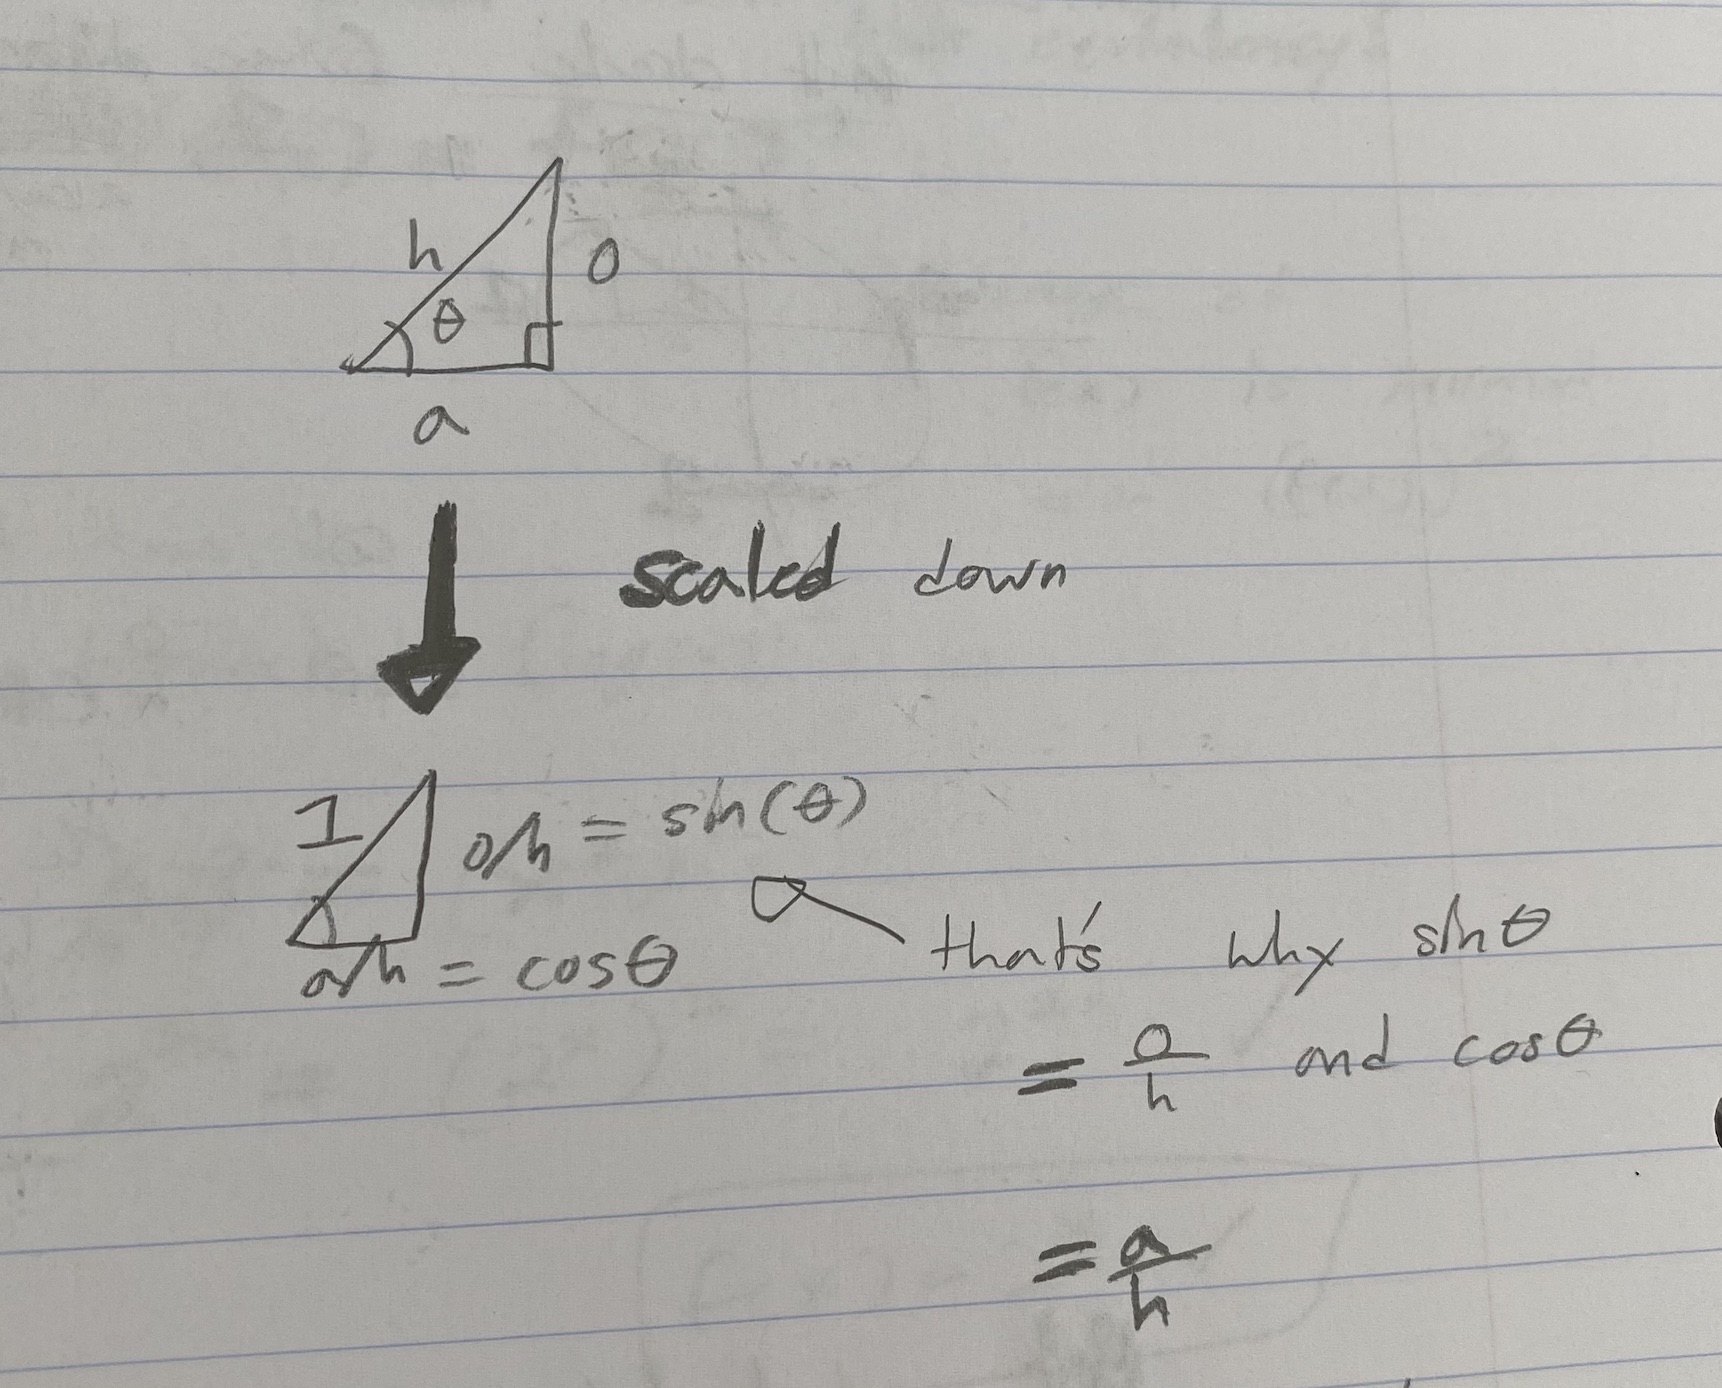 h
o
θ
a
scaled down
1
o/h = sin(θ)
a/h = cosθ
that's why sinθ
= o/h and cosθ
= a/h